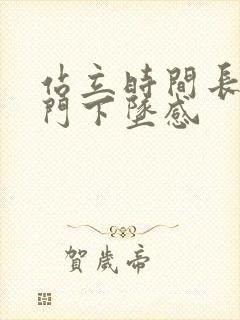 佔立時間長
門下墜感
賀歲帝